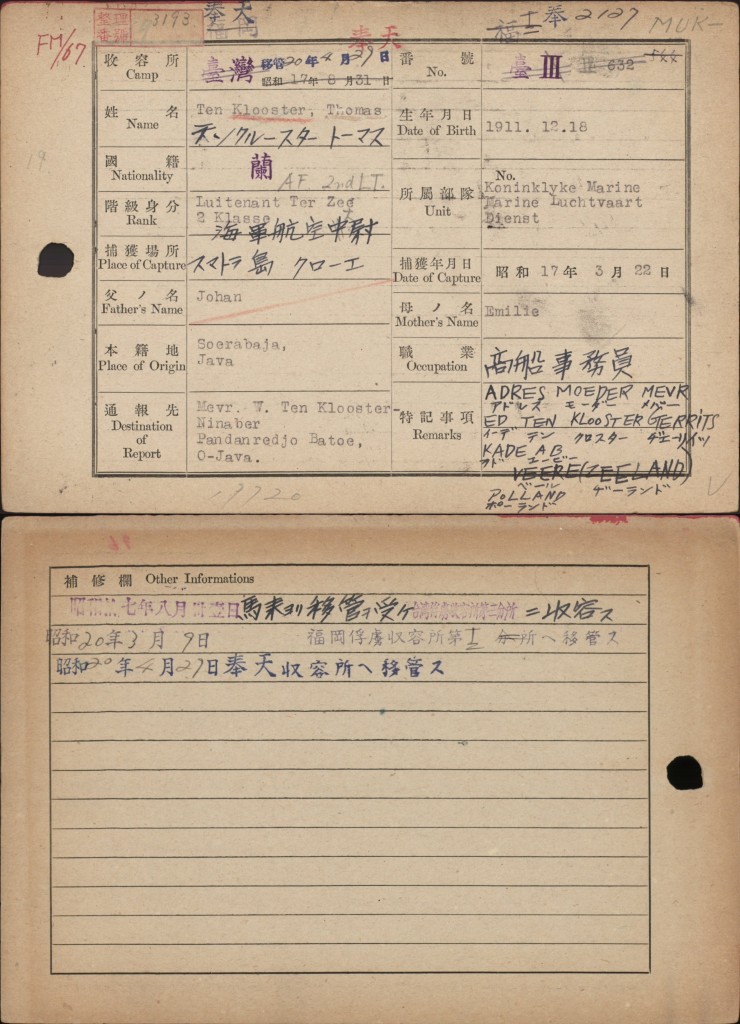 整理番號
3193
奉天
福岡
奉天
福 奉 2127
MUK-
FM/07
收容所 Camp
臺灣
移管20年4月29日
昭和17年8月31日
番號 No.
臺 III 632
姓名 Name
Ten Klooster, Thomas
テンクルースター トーマス
生年月日 Date of Birth
1911. 12.18
國籍 Nationality
蘭
AF 2nd LT.
階級身分 Rank
Luitenant Ter Zee
2 Klasse
海軍航空中尉
所屬部隊 Unit
No.
Koninklyke Marine
Marine Luchtvaart
Dienst
捕獲場所 Place of Capture
スマトラ島 クローエ
捕獲年月日 Date of Capture
昭和 17年 3月 22日
父ノ名 Father's Name
Johan
母ノ名 Mother's Name
Emilie
本籍地 Place of Origin
Soerabaja,
Java
職業 Occupation
商船事務員
通報先 Destination of Report
Mevr. W. Ten Klooster-
Ninaber
Pandanredjo Batoe,
O-Java.
特記事項 Remarks
ADRES MOEDER MEVR
アドレス モーダー メバー
ED TEN KLOOSTER GERRITS
イーデー テン クロスター ゲエーリイツ
KADE AB
カド エービー
VEERE (ZEELAND)
ベール ゼーランド
POLLAND
ポーランド
17720
補修欄 Other Informations
昭和拾七年八月卅壹日馬来ヨリ移管ヲ受ケ台湾俘虜収容所第三分所ニ収容ス
昭和20年3月9日 福岡俘虜収容所第1分所ヘ移管ス
昭和20年4月27日奉天収容所ヘ移管ス